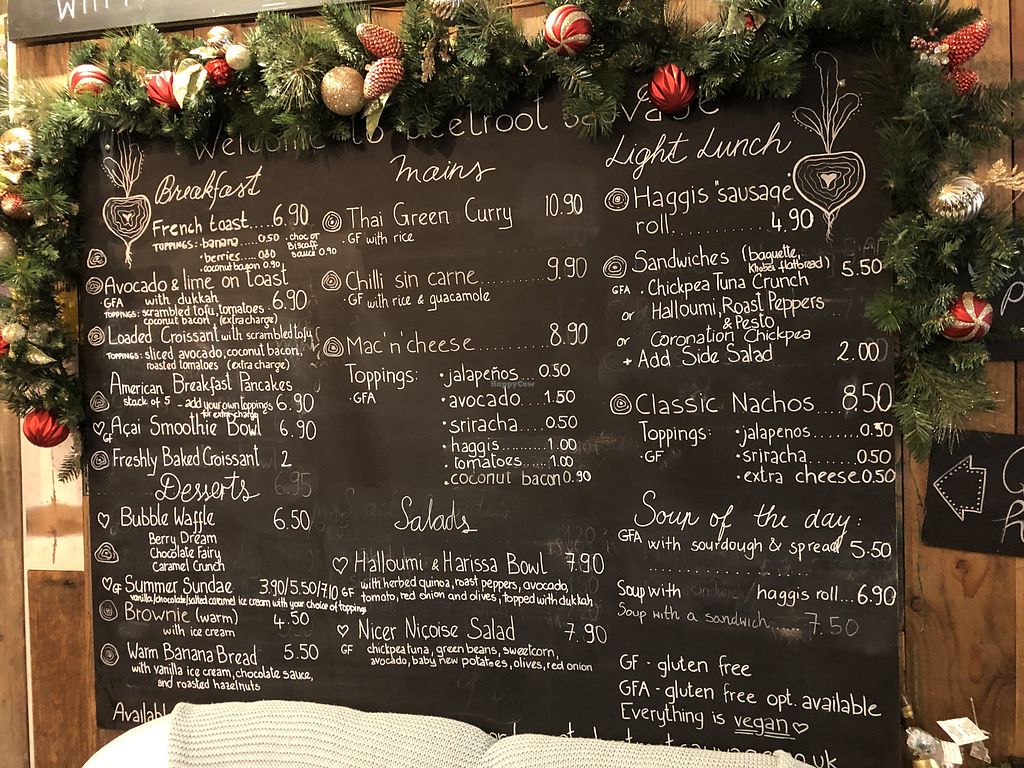 Welcome to Beetroot Sauvage
Breakfast
French toast.....6.90
TOPPINGS: · banana.....0.50 · choc or
Biscoff
sauce 0.90
· berries..... 0.80
· coconut bacon 0.90
Avocado & lime on toast
GFA with dukkah 6.90
TOPPINGS: scrambled tofu, tomatoes
coconut bacon (extra charge)
Loaded Croissant with scrambled tofu
TOPPINGS: sliced avocado, coconut bacon,
roasted tomatoes (extra charge)
American Breakfast Pancakes
stack of 5 - add your own toppings 6.90
for extra charge
GF Açai Smoothie Bowl 6.90
Freshly Baked Croissant 2
Desserts 6.95
Bubble Waffle 6.50
Berry Dream
Chocolate Fairy
Caramel Crunch
GF Summer Sundae 3.90/5.50/7.10
vanilla/chocolate/salted caramel ice cream with your choice of toppings
Brownie (warm) 4.50
with ice cream
Warm Banana Bread 5.50
with vanilla ice cream, chocolate sauce,
and roasted hazelnuts
mains
Thai Green Curry 10.90
· GF with rice
Chilli sin carne 9.90
· GF with rice & guacamole
Mac'n'cheese 8.90
Toppings: · jalapeños...0.50
· GFA · avocado...1.50
· sriracha.....0.50
· haggis.......1.00
· tomatoes.....1.00
· coconut bacon 0.90
Salads
Halloumi & Harissa Bowl 7.90
GF with herbed quinoa, roast peppers, avocado,
tomato, red onion and olives, topped with dukkah
Nicer Niçoise Salad 7.90
GF chickpea tuna, green beans, sweetcorn,
avocado, baby new potatoes, olives, red onion
Light Lunch
Haggis "sausage"
roll.......... 4.90
Sandwiches (baguette,
Khobez flatbread) 5.50
GFA . Chickpea Tuna Crunch
or Halloumi, Roast Peppers
& Pesto
or Coronation Chickpea
+ Add Side Salad 2.00
Classic Nachos....8.50
Toppings: · jalapenos.......0.50
· GF · sriracha.......0.50
· extra cheese 0.50
Soup of the day:
GFA with sourdough & spread 5.50
Soup with haggis roll...6.90
Soup with a sandwich..... 7.50
GF - gluten free
GFA - gluten free opt. available
Everything is vegan
HappyCow